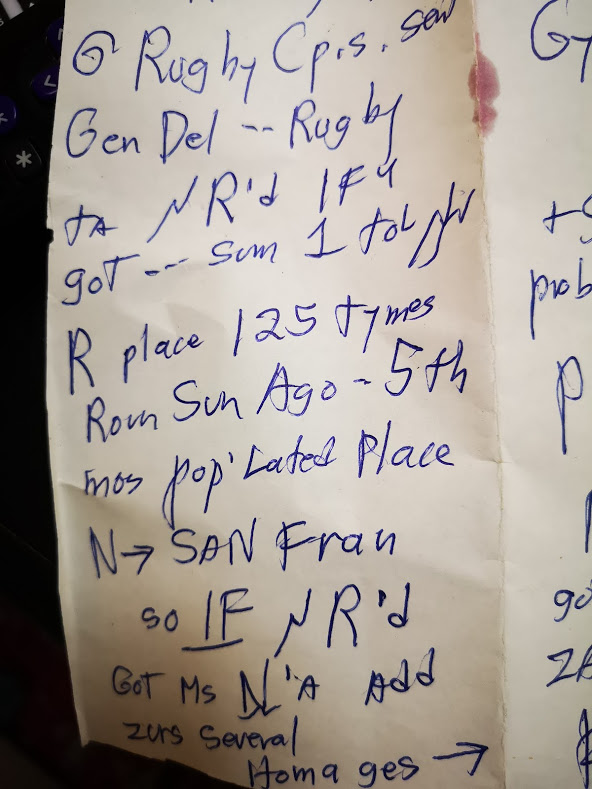 Rugby Cp.s. sev
Gen Del -- Rugby
tA R'd IF 4
got --- sum 1 tol
R place 125 tymes
Roun Sun Ago - 5th
mos pop'Lated Place
N → SAN Fran
so IF R'd
GOT Ms N'A Add
zurs several
Homa ges →
Gy
+S
prob
P
go